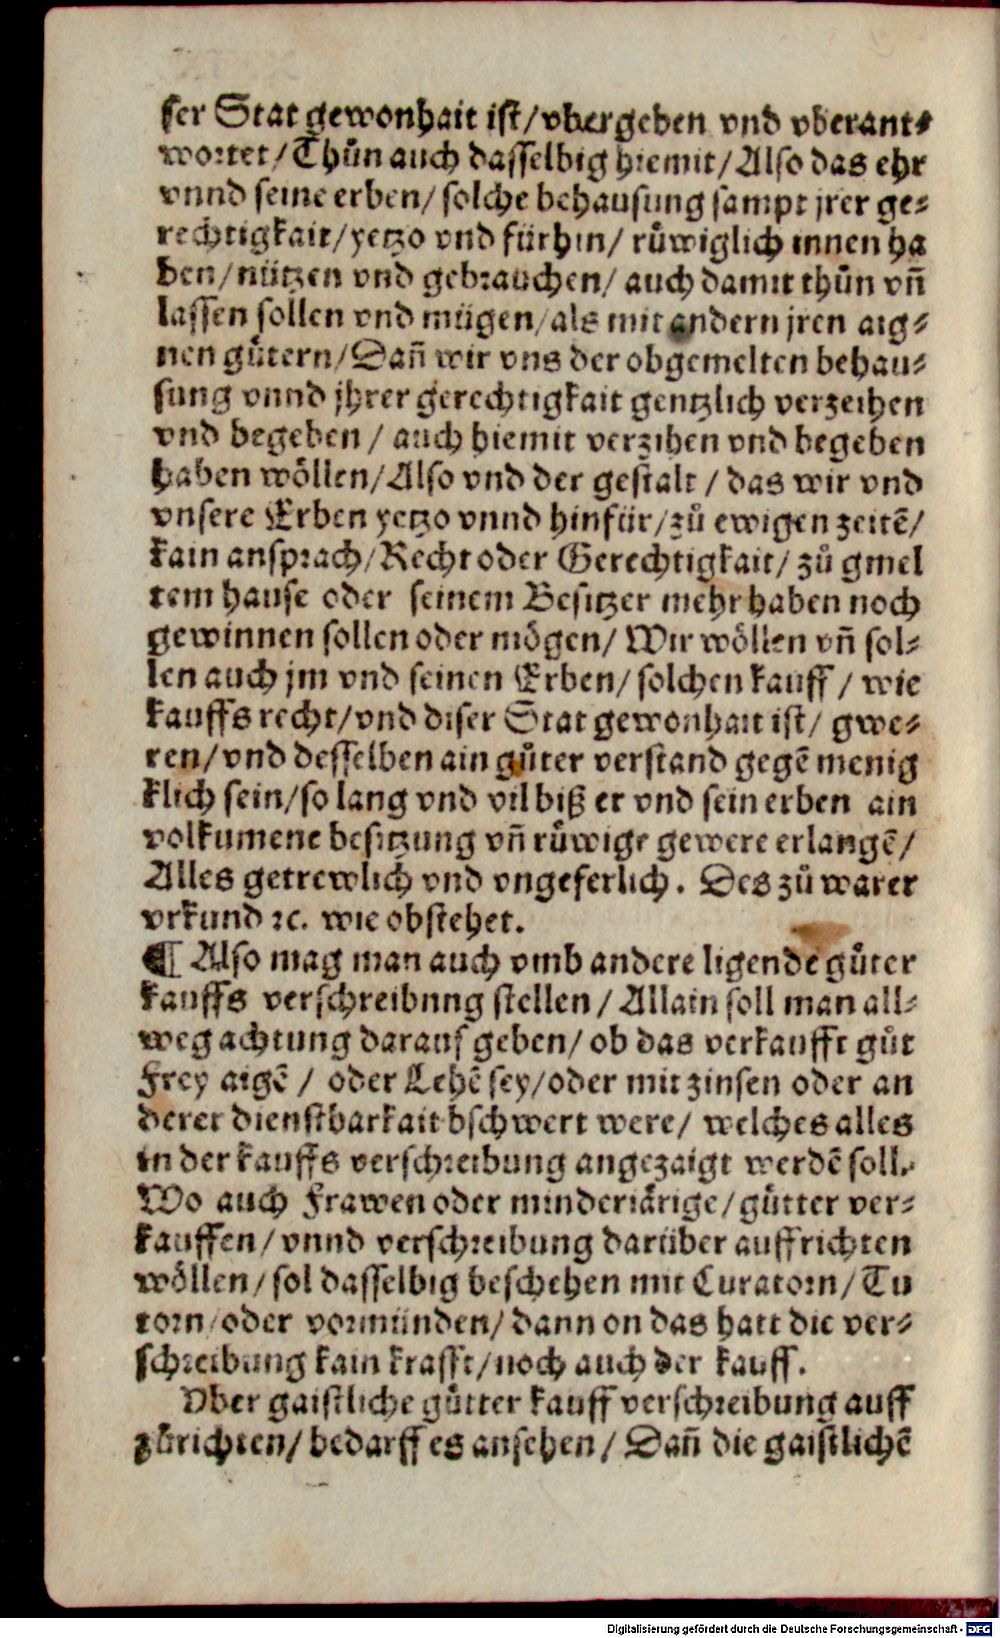 ser Stat gewonhait ist/vbergeben vnd vberant⸗
wortet/Thůn auch dasselbig hiemit/Also das ehr
vnnd seine erben/solche behausung sampt jrer ge⸗
rechtigkait/yetzo vnd fürhin/ růwiglich innen ha
ben/nützen vnd gebrauchen/ auch damit thůn vñ
lassen sollen vnd mügen/als mit andern jren aig⸗
nen gůtern/Dañ wir vns der obgemelten behau⸗
sung vnnd jhrer gerechtigkait gentzlich verzeihen
vnd begeben / auch hiemit verzihen vnd begeben
haben wöllen/Also vnd der gestalt / das wir vnd
vnsere Erben yetzo vnnd hinfür/zů ewigen zeitẽ/
kain ansprach/Recht oder Gerechtigkait/ zů gmel
tem hause oder seinem Besitzer mehr haben noch
gewinnen sollen oder mögen/ Wir wöllen vñ sol⸗
len auch jm vnd seinen Erben/ solchen kauff / wie
kauffs recht/vnd diser Stat gewonhait ist/ gwe⸗
ren/vnd desselben ain gůter verstand gegẽ menig
klich sein/so lang vnd vil biß er vnd sein erben ain
volkumene besitzung vñ růwige gewere erlangẽ/
Alles getrewlich vnd vngeferlich. Des zů warer
vrkund ꝛc. wie obstehet.
¶ Also mag man auch vmb andere ligende gůter
kauffs verschreibnng stellen / Allain soll man all⸗
weg achtung darauf geben/ ob das verkaufft gůt
Frey aigẽ / oder Lehẽ sey/oder mit zinsen oder an
derer dienstbarkait bschwert were/ welches alles
in der kauffs verschreibung angezaigt werdẽ soll.
Wo auch Frawen oder minderiärige/gůtter ver⸗
kauffen/vnnd verschreibung darüber auffrichten
wöllen/sol dasselbig beschehen mit Curatorn/Tu
torn/oder vormünden/dann on das hatt die ver⸗
schreibung kain krafft/noch auch der kauff.
Vber gaistliche gůtter kauff verschreibung auff
zůrichten/bedarff es ansehen/Dañ die gaistlichẽ
Digitalisierung gefördert durch die Deutsche Forschungsgemeinschaft - DFG